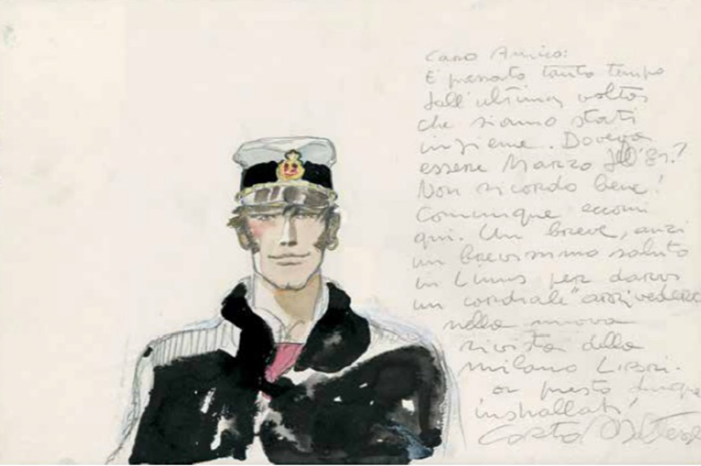 Caro Amico:
È passato tanto tempo
dall'ultima volta
che siamo stati
insieme. Doveva
essere Marzo dell'81?
Non ricordo bene!
Comunque eccomi
qui. Un breve, anzi
un brevissimo saluto
in Linus per darvi
un cordiale "arrivederci
nella nuova
rivista della
milano Libri.
a presto dunque
Corto Maltese